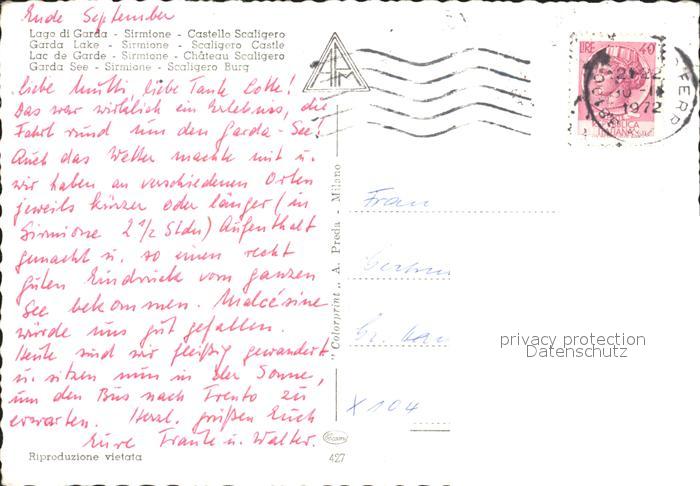 Ende September
Lago di Garda - Sirmione - Castello Scaligero
Garda Lake - Sirmione - Scaligero Castle
Lac de Garde - Sirmione - Château Scaligero
Garda See - Sirmione - Scaligero Burg
liebe Mutti, liebe Tante Lotte!
Das war wirklich ein Erlebnis, die
Fahrt rund um den Garda-See!
Auch das Wetter machte mit u.
wir haben an verschiedenen Orten
jeweils kürzer oder länger (in
Sirmione 2 1/2 Stdn) Aufenthalt
gemacht u. so einen recht
guten Eindruck vom ganzen
See bekommen. Malcésine
würde uns gut gefallen.
Heute sind wir fleißig gewandert
u. sitzen nun in der Sonne,
um den Bus nach Trento zu
erwarten. Herzl. grüßen Euch
Eure Traute u. Walter.
Riproduzione vietata
427
"Colorprint" A. Preda - Milano
LIRE 40
21-22
1972
FERR
ITALIANA
Frau
X 104
privacy protection
Datenschutz